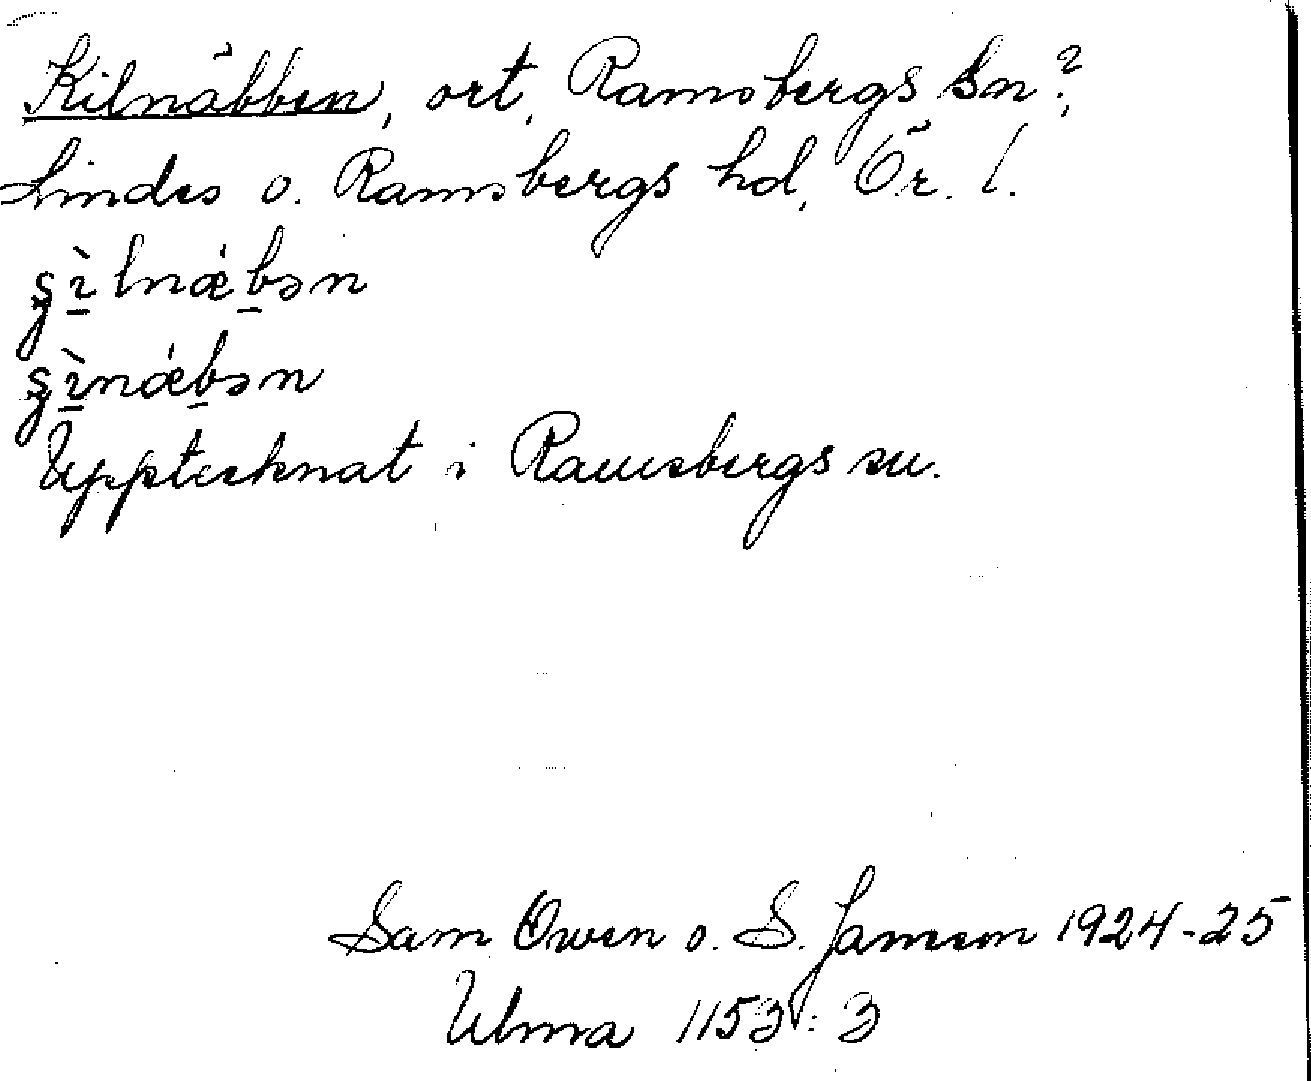 Kilnäbben, ort, Ramsbergs sn?,
Lindes o. Ramsbergs hd, Ör. l.
Upptecknat i Ramsbergs sn.
Sam Owen o. S. Janson 1924-25
Ulma 1153:3